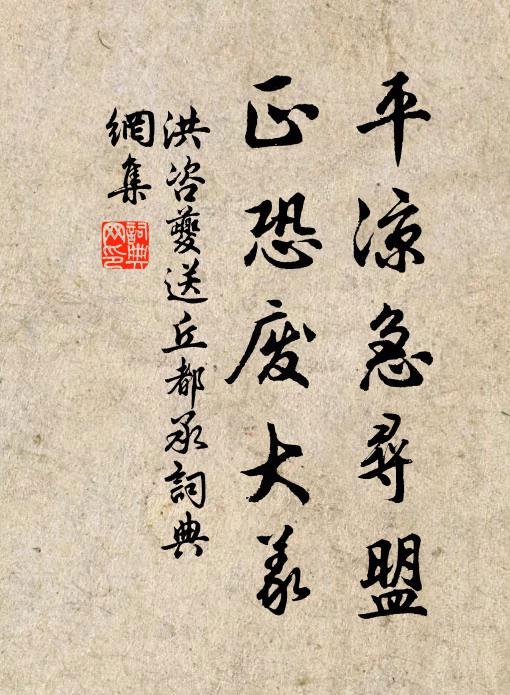 平涼急尋盟
正恐廢大義
洪咨夔送丘都承詞典
網集
詞典網印